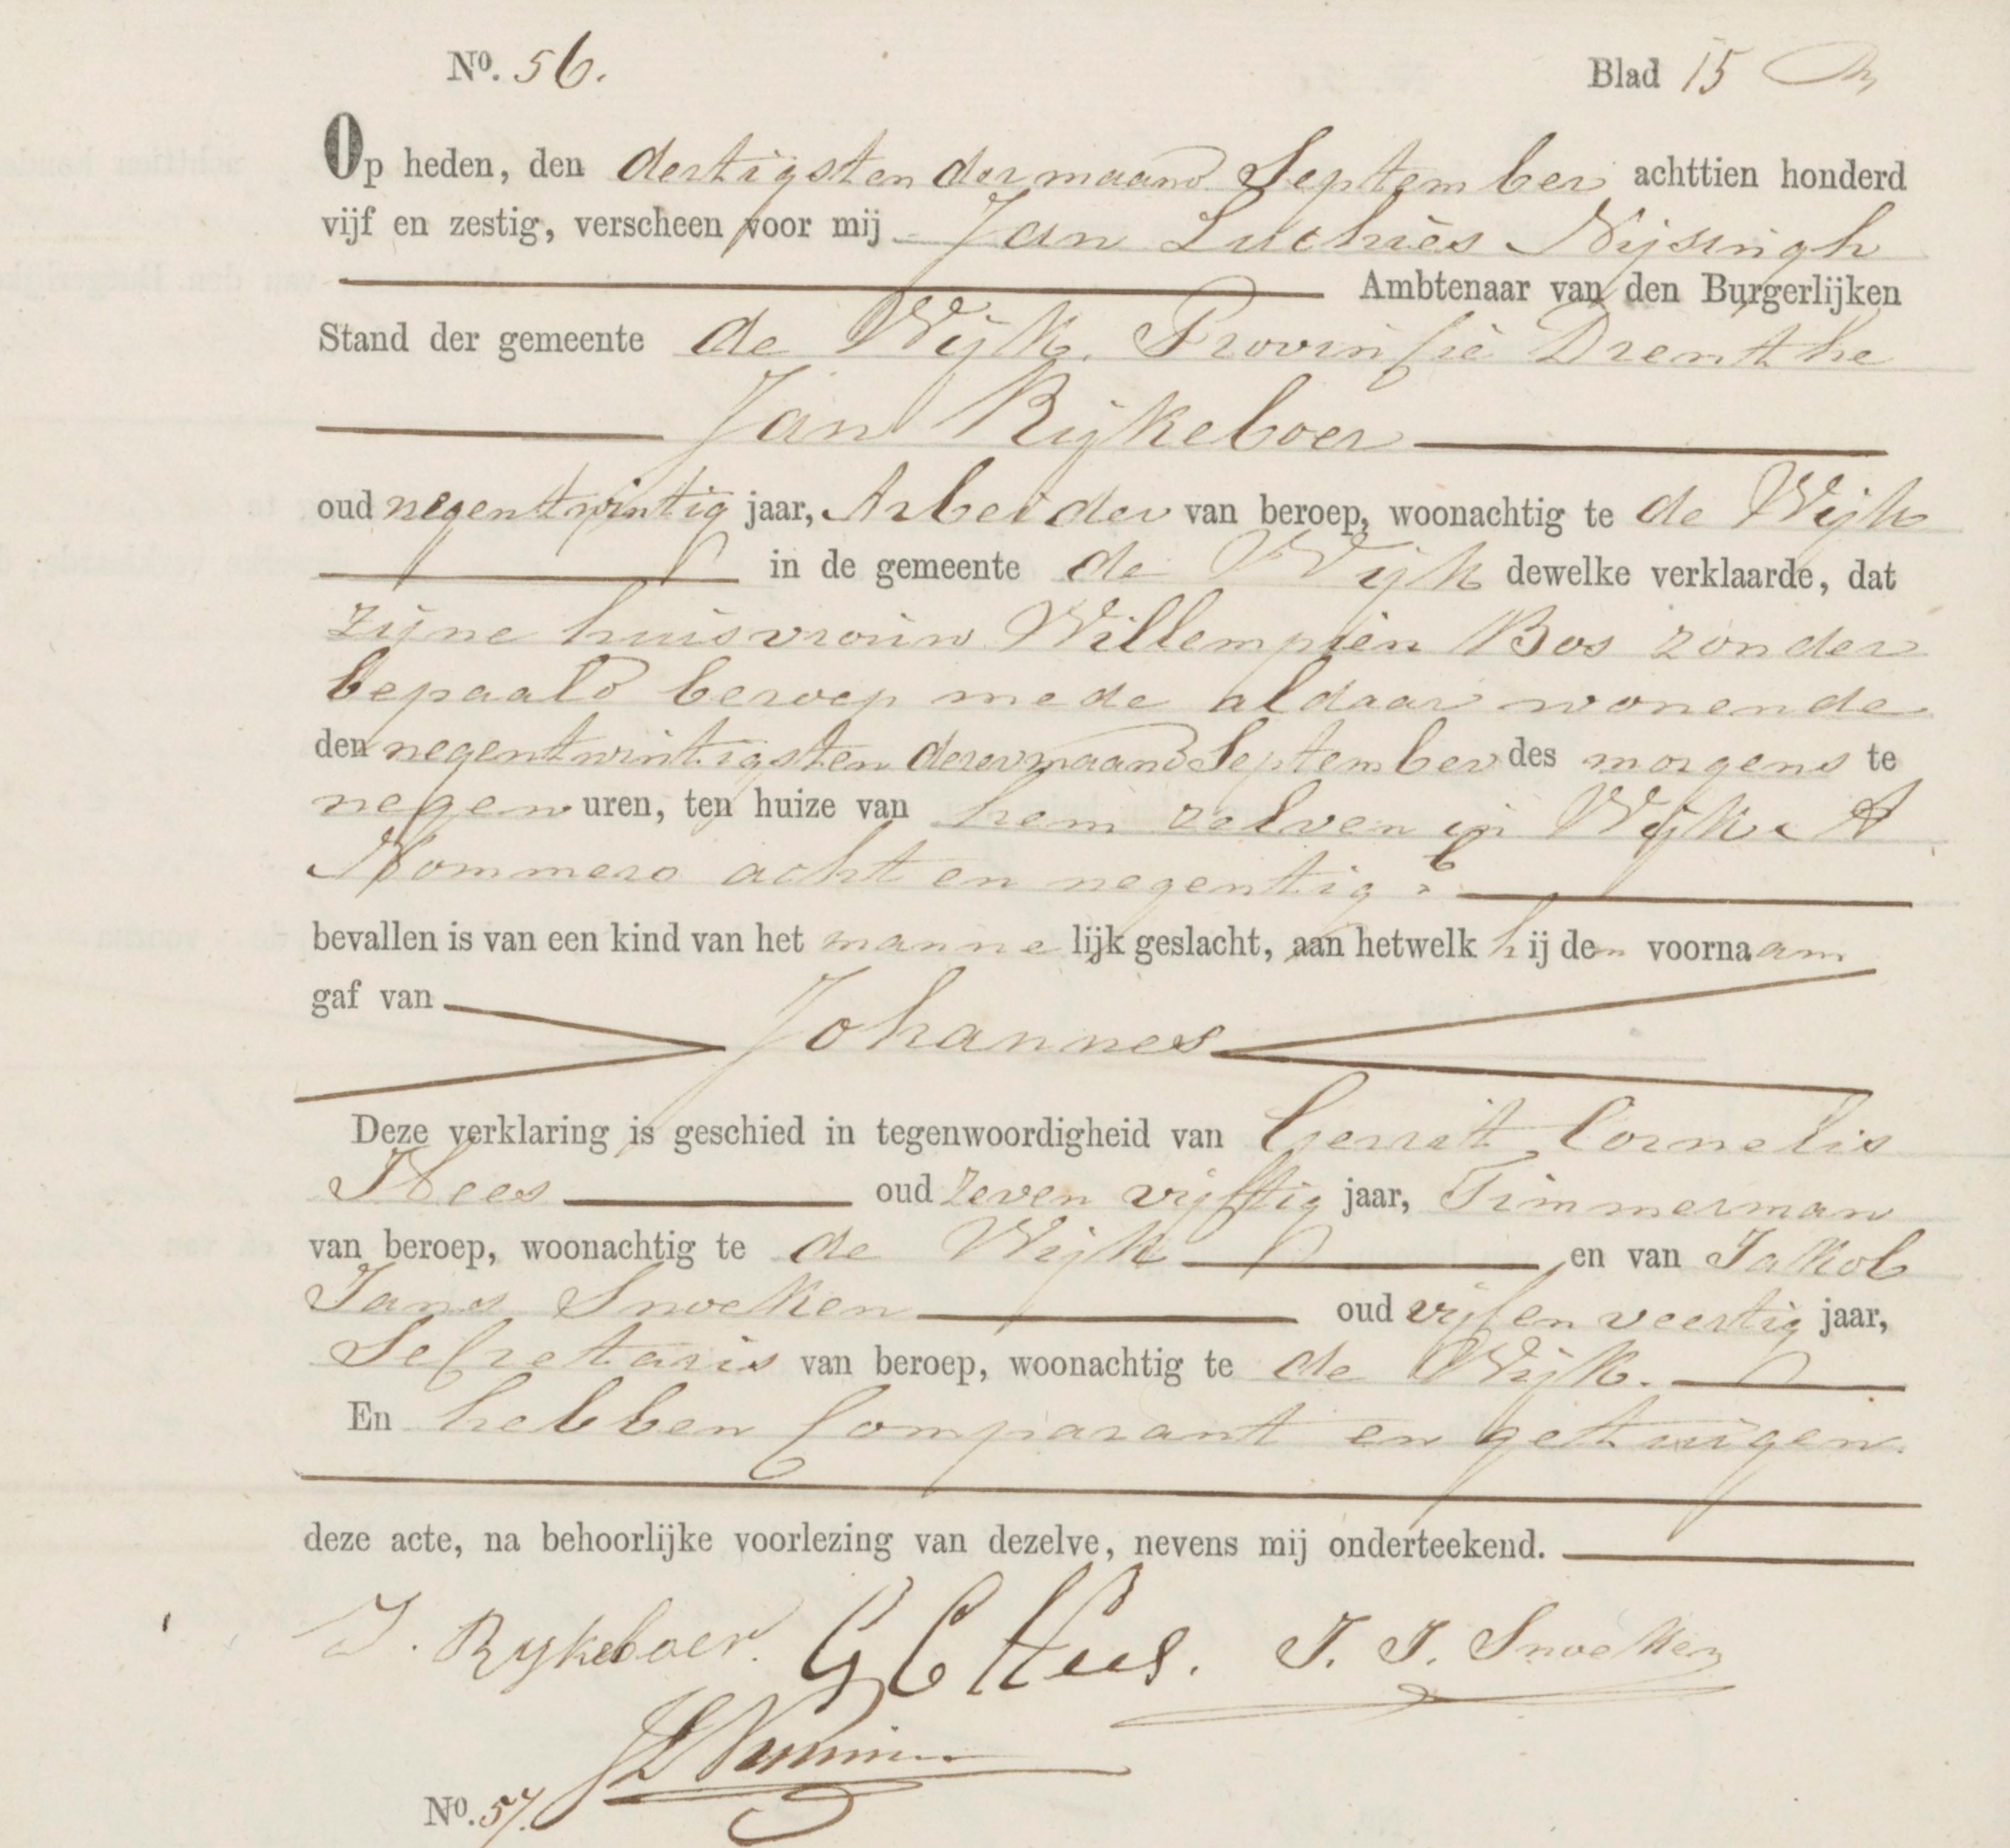 No. 56. Blad 15
Op heden, den dertigsten der maand September achttien honderd
vijf en zestig, verscheen voor mij Jan Luchies Nijsingh
Ambtenaar van den Burgerlijken
Stand der gemeente de Wijk, Provinsie Drenthe
Jan Rijkeboer
oud negentwintig jaar, Arbeider van beroep, woonachtig te de Wijk
in de gemeente de Wijk dewelke verklaarde, dat
zijne huisvrouw Willempien Bos zonder
bepaald beroep mede aldaar wonende
den negentwintigsten dezer maand September des morgens te
negen uren, ten huize van hem zelven in Wijk A
Nommero acht en negentig b
bevallen is van een kind van het mannelijk geslacht, aan hetwelk hij den voornaam
gaf van Johannes
Deze verklaring is geschied in tegenwoordigheid van Gerrit Cornelis
Hees oud zeven vijftig jaar, Timmerman
van beroep, woonachtig te de Wijk en van Jakob
Jans Snoeken oud vijf en veertig jaar,
Secretaris van beroep, woonachtig te de Wijk.
En hebben Comparant en getuigen
deze acte, na behoorlijke voorlezing van dezelve, nevens mij onderteekend.
J. Rykeboer. G C Hees. J. J. Snoeken
No. 57.